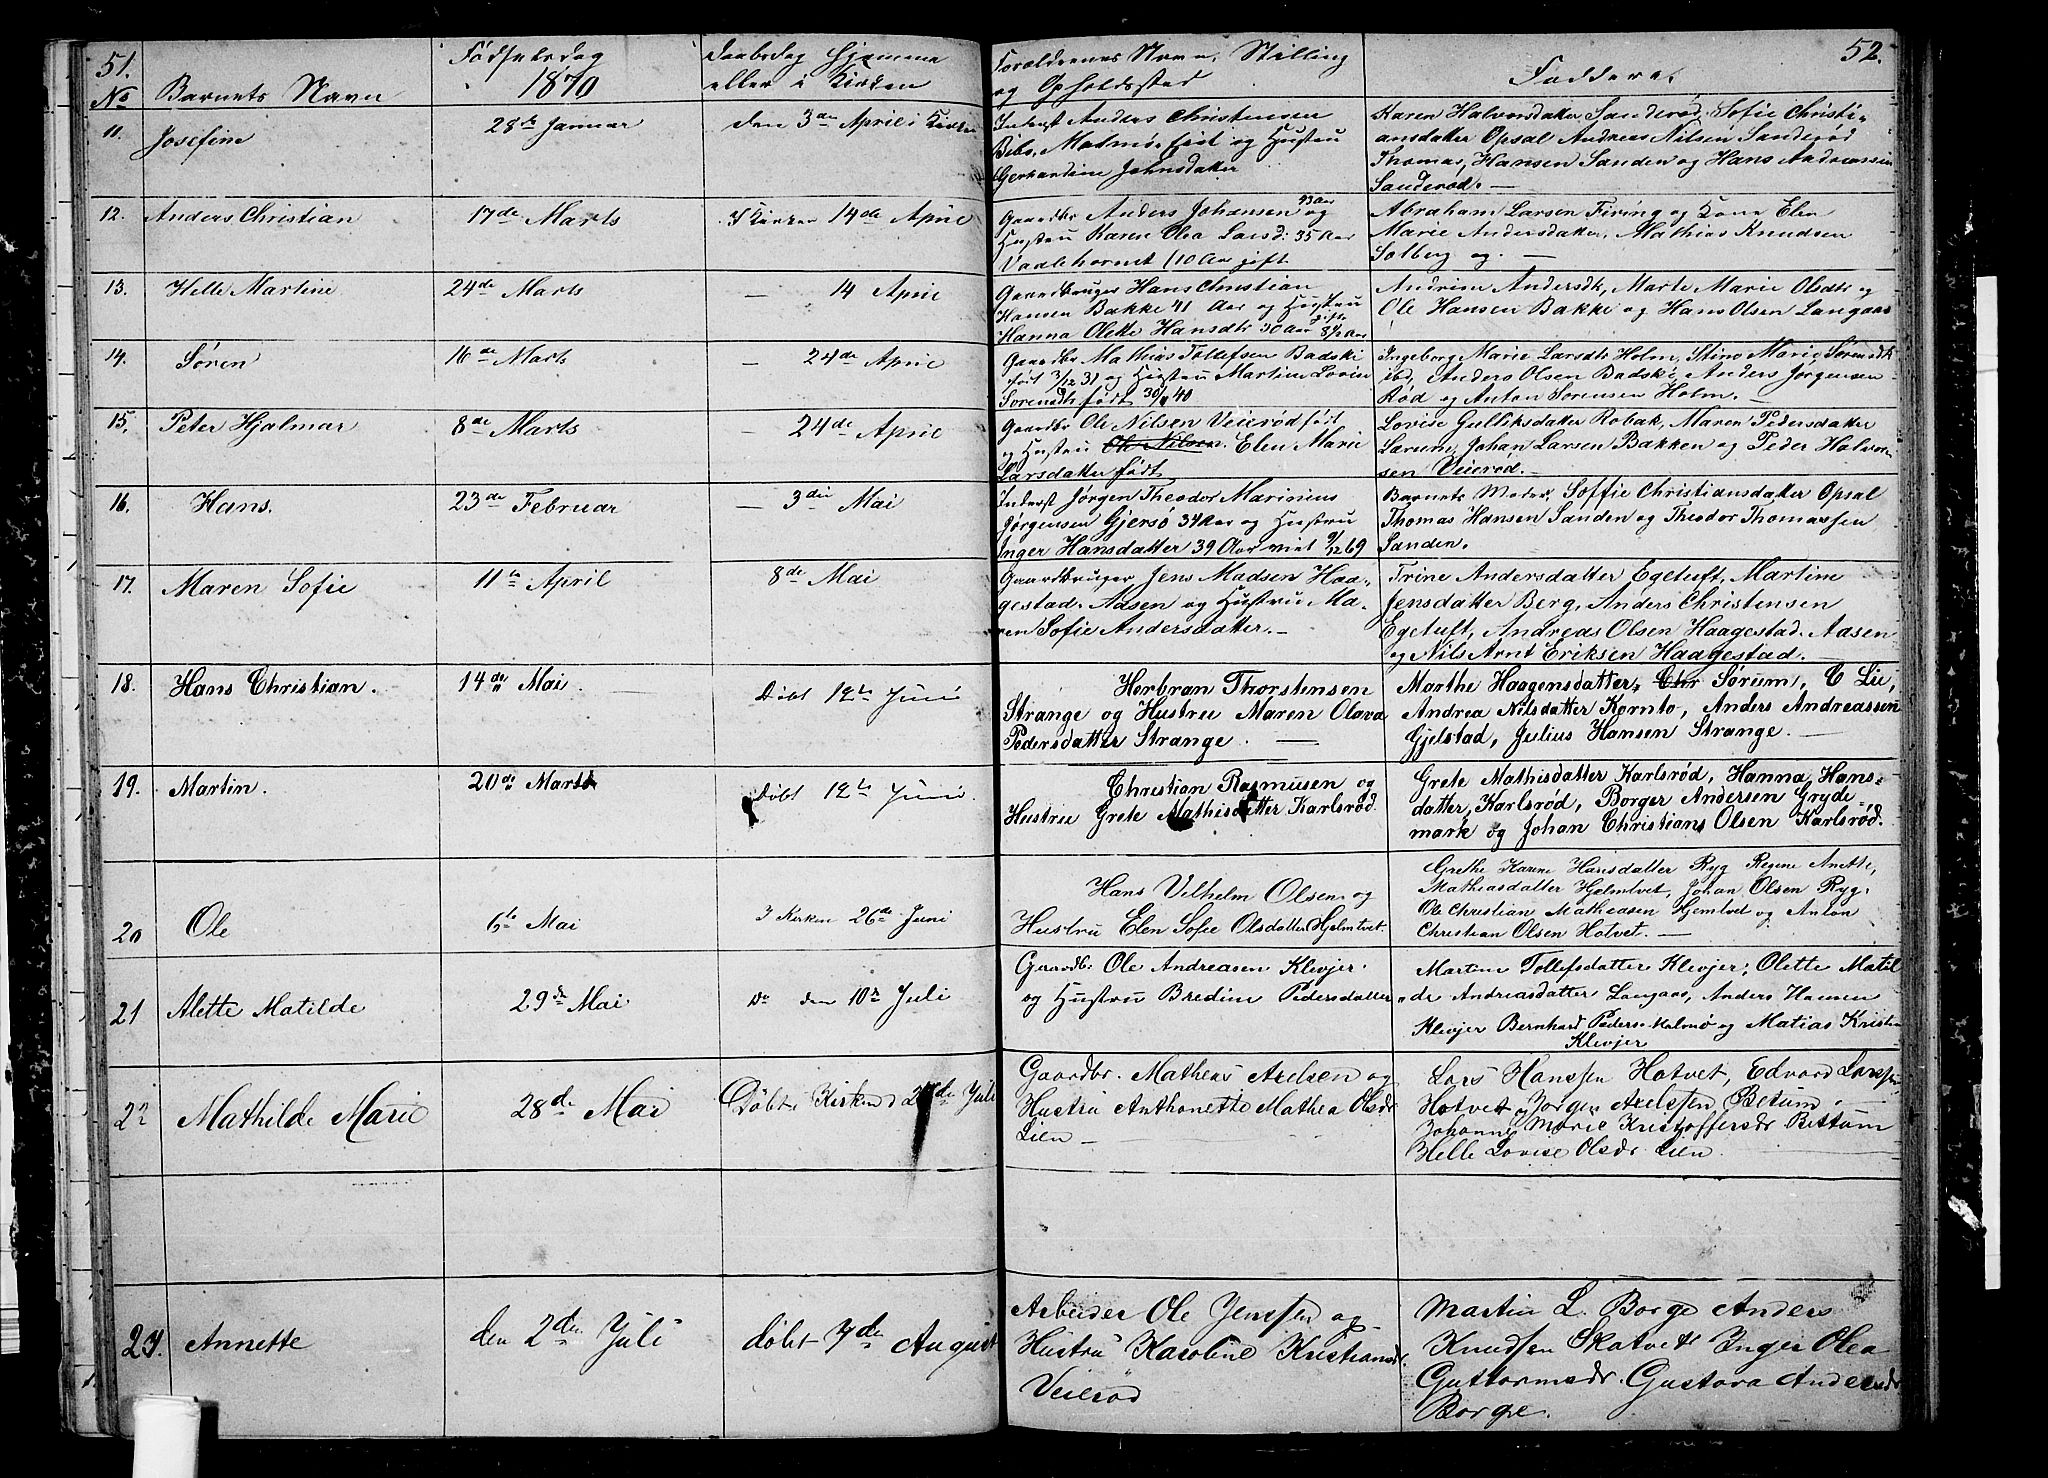 51.
No
Barnets Navn
Fødselsdag
1870
Daabsdag Hjemme
eller i Kirken
Forældrenes Navn, Stilling
og Opholdssted
Faddere.
52.
11.
Josefine
28de Januar
den 3die April i Kirken
Inderst Anders Christensen
Malmö født og Hustru
Gerhardine Johnsdatter
Karen Halvorsdatter Sanderød, Sofie Christi-
ansdatter Opsal Andreas Nilsen Sanderød
Thomas Hansen Sanden og Hans Andreassen
Sanderød. —
12.
Anders Christian
17de Marts
I Kirken 14de April
Gaardbr Anders Johansen 43 Aar og
Hustru Karen Olea Larsd: 35 Aar
Vaalehornet (10 Aar gift
Abraham Larsen Firing og Kone Elen
Marie Andersdatter, Mathias Knudsen
Solberg og. —
13.
Helle Martine
24de Marts
— 14 April
Gaardbruger Hans Christian
Hansen Bakke 41 Aar og Hustru
Hanna Olette Hansdtr 30 Aar gift 8½ Aar
Andrine Andersdtr, Marte Marie Olsdtr og
Ole Hansen Bakke og Hans Olsen Langaas
14.
Søren
16de Marts
— 24de April
Gaardbr Mathias Tollefsen Badski
født 3/12 31 og Hustru Martine Lovise
Sørensdtr født 30/ 40
Ingeborg Marie Larsdtr Holm, Stine Marie Sørensdtr
ibd, Anders Olsen Badski, Anders Jørgensen
Rød og Anton Sørensen Holm. —
15.
Peter Hjalmar
8de Marts
— 24de April
Gaardbr Ole Nilsen Veierød født
og Hustru Ole Nilsen. Elen Marie
Larsdatter født
Lovise Gulliksdatter Robak, Maren Pedersdatter
Lærum, Johan Larsen Bakken og Peder Halvor-
sen Veierød. —
16.
Hans.
23de Februar
— 3die Mai
Inderst Jørgen Theodor Marinius
Jørgensen Gjersø 34 Aar og Hustru
Inger Hansdatter 39 Aar viet 9/12 69
Barnets Moder, Soffie Christiansdatter Opsal
Thomas Hansen Sanden og Theodor Thomassen
Sanden.
17.
Maren Sofie
11te April
8de Mai
Gaardbruger Jens Madsen Haa-
gestad. Aasen og Hustru Ma-
ren Sofie Andersdatter. —
Trine Andersdatter Egetuft, Martine
Jensdatter Berg, Anders Christensen
Egetuft, Andreas Olsen Haagestad. Aasen
og Nils Arnt Eriksen Haagestad.
18.
Hans Christian.
14de Mai.
Døbt 12te Juni
Herbran Thorstensen
Strange og Hustru Maren Olava
Pedersdatter Strange. —
Marthe Haagensdatter, Chr Sørum, C Lie,
Andrea Nilsdatter Kornto, Anders Andreassen
Gjelstad, Julius Hansen Strange. —
19.
Martin.
20de Marts
Døbt 12te Juni
Christian Rasmusen og
Hustru Grete Mathisdatter Karlsrød
Grete Mathisdatter Karlsrød, Hanna Hans-
datter, Karlsrød, Borger Andersen Gryde-
mark og Johan Christians Olsen Karlsrød.
20
Ole
6te Mai
I Kirken 26de Juni
Hans Vilhelm Olsen og
Hustru Elen Sofie Olsdatter Hjelmtvet.
Grethe Karine Hansdatter Ryg Regine Anette,
Mathiasdatter Hjelmtvet, Johan Olsen Ryg.
Ole Christian Matheasen Hjemtvet og Anton
Christian Olsen Hotvet. —
21
Alette Matilde
29de Mai
Do den 10de Juli
Gaardb: Ole Andreasen Klevjer.
og Hustru Bredine Pedersdatter
Martine Tollefsdatter Klevjer; Olette Matil
de Andreasdatter Langaas, Anders Hansen
Klevjer Bernhard Peders. Malmø og Matias Kristian
Klevjer
22
Mathilde Marie
28de Mai
Døbt i Kirken d Juli
Gaardbr. Matheus Axelsen og
Hustru Anthonette Mathea Olsdr
Lien —
Lars Hanssen Hotvet, Edvard Larssen
Hotvet, Jørgen Axelssen Betum.
Johanne Marie Kristoffersdr Bettum
Helle Lovise Olsdr Lien.
23.
Annette
den 2den Juli
døbt 7de August
Arbeider Ole Jenssen og
Hustru Karoline Kristiansdr.
Veierød
Martin L. Borge Anders
Knudsen Skatvet Inger Olea
Guttormsdr. Gustava Andersdr
Borge.